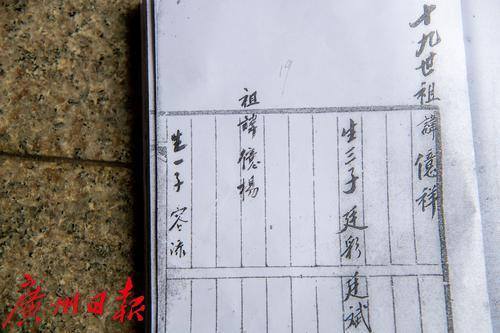 十九世祖諱億祥
生三子廷彩廷斌
祖諱億楊
生一子容添
19
廣州日報